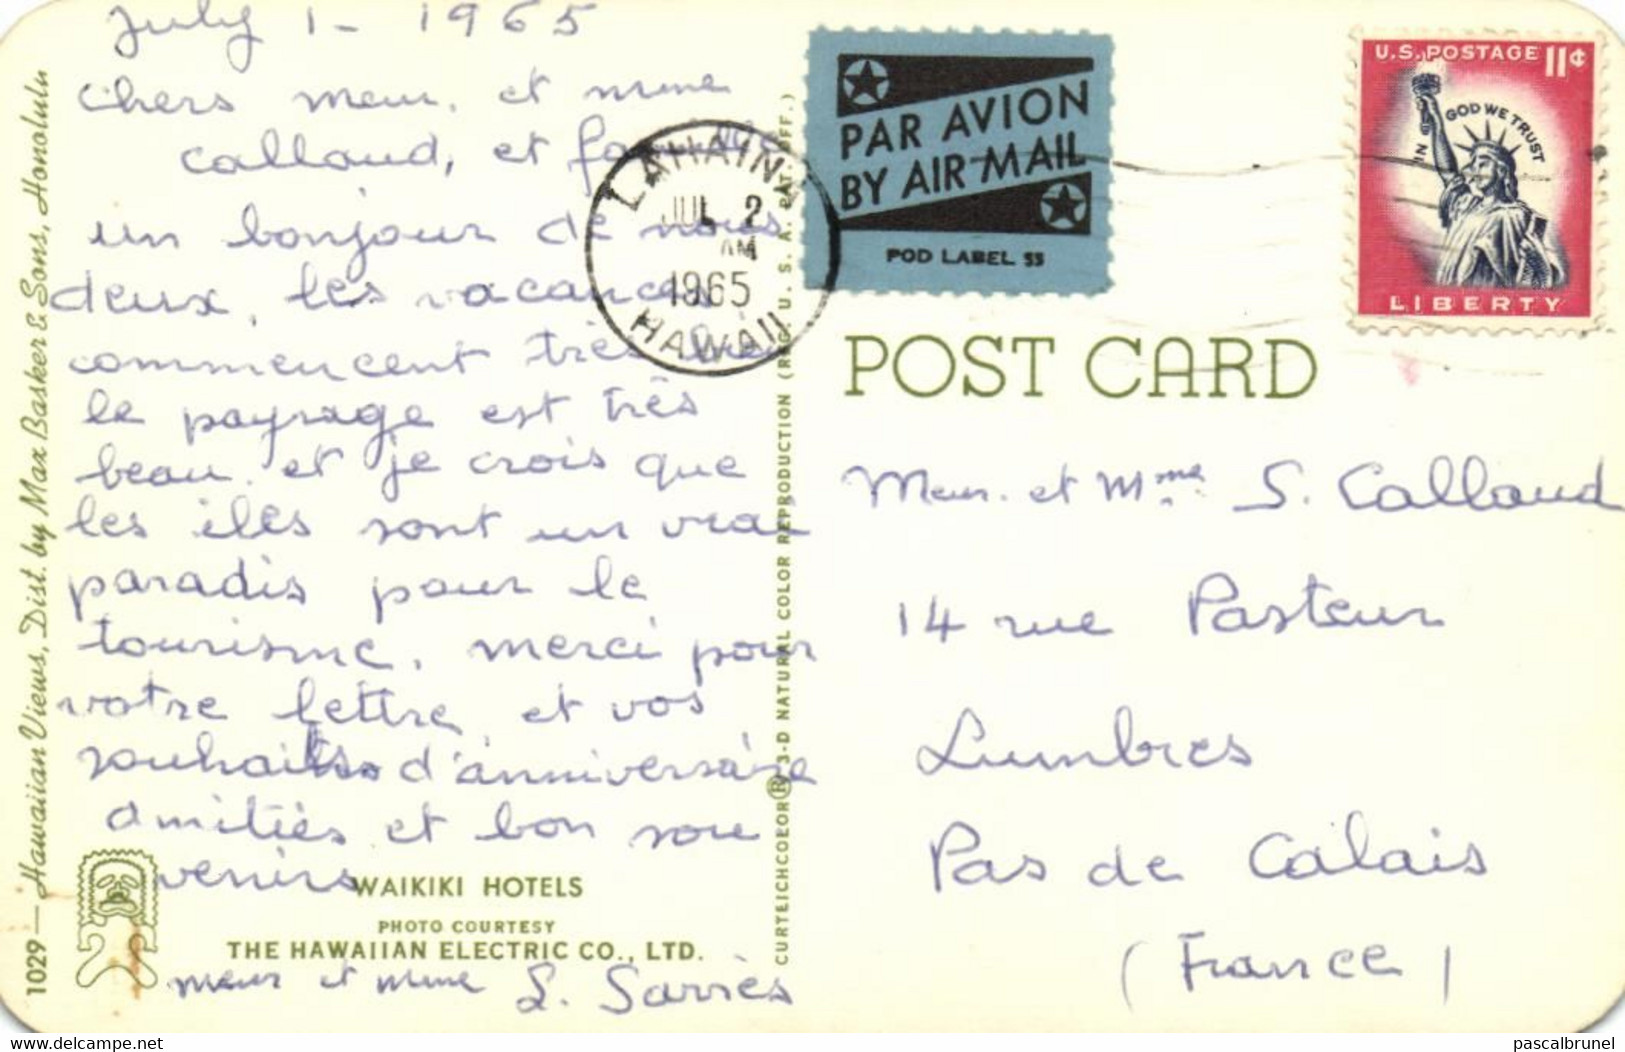 July 1 - 1965
Chers Meur. et Mme
Callaud, et famille
un bonjour de nous
deux, les vacances
commencent très bien
le paysage est très
beau et je crois que
les iles sont un vrai
paradis pour le
tourisme, merci pour
votre lettre et vos
souhaits d'anniversaire
amitiés et bon sou
venirs
Meur et Mme L. Sarriès
WAIKIKI HOTELS
PHOTO COURTESY
THE HAWAIIAN ELECTRIC CO., LTD.
1029—Hawaiian Views, Dist. by Max Basker & Sons, Honolulu
CURTEICHCOLOR® 3-D NATURAL COLOR REPRODUCTION (REG. U. S. A. PAT. OFF.)
LAHAINA
JUL 2
AM
1965
HAWAII
PAR AVION
BY AIR MAIL
POD LABEL 55
U.S. POSTAGE 11¢
IN GOD WE TRUST
LIBERTY
POST CARD
Meur. et Mme S. Callaud
14 rue Pasteur
Lumbres
Pas de Calais
(France)
delcampe.net
pascalbrunel